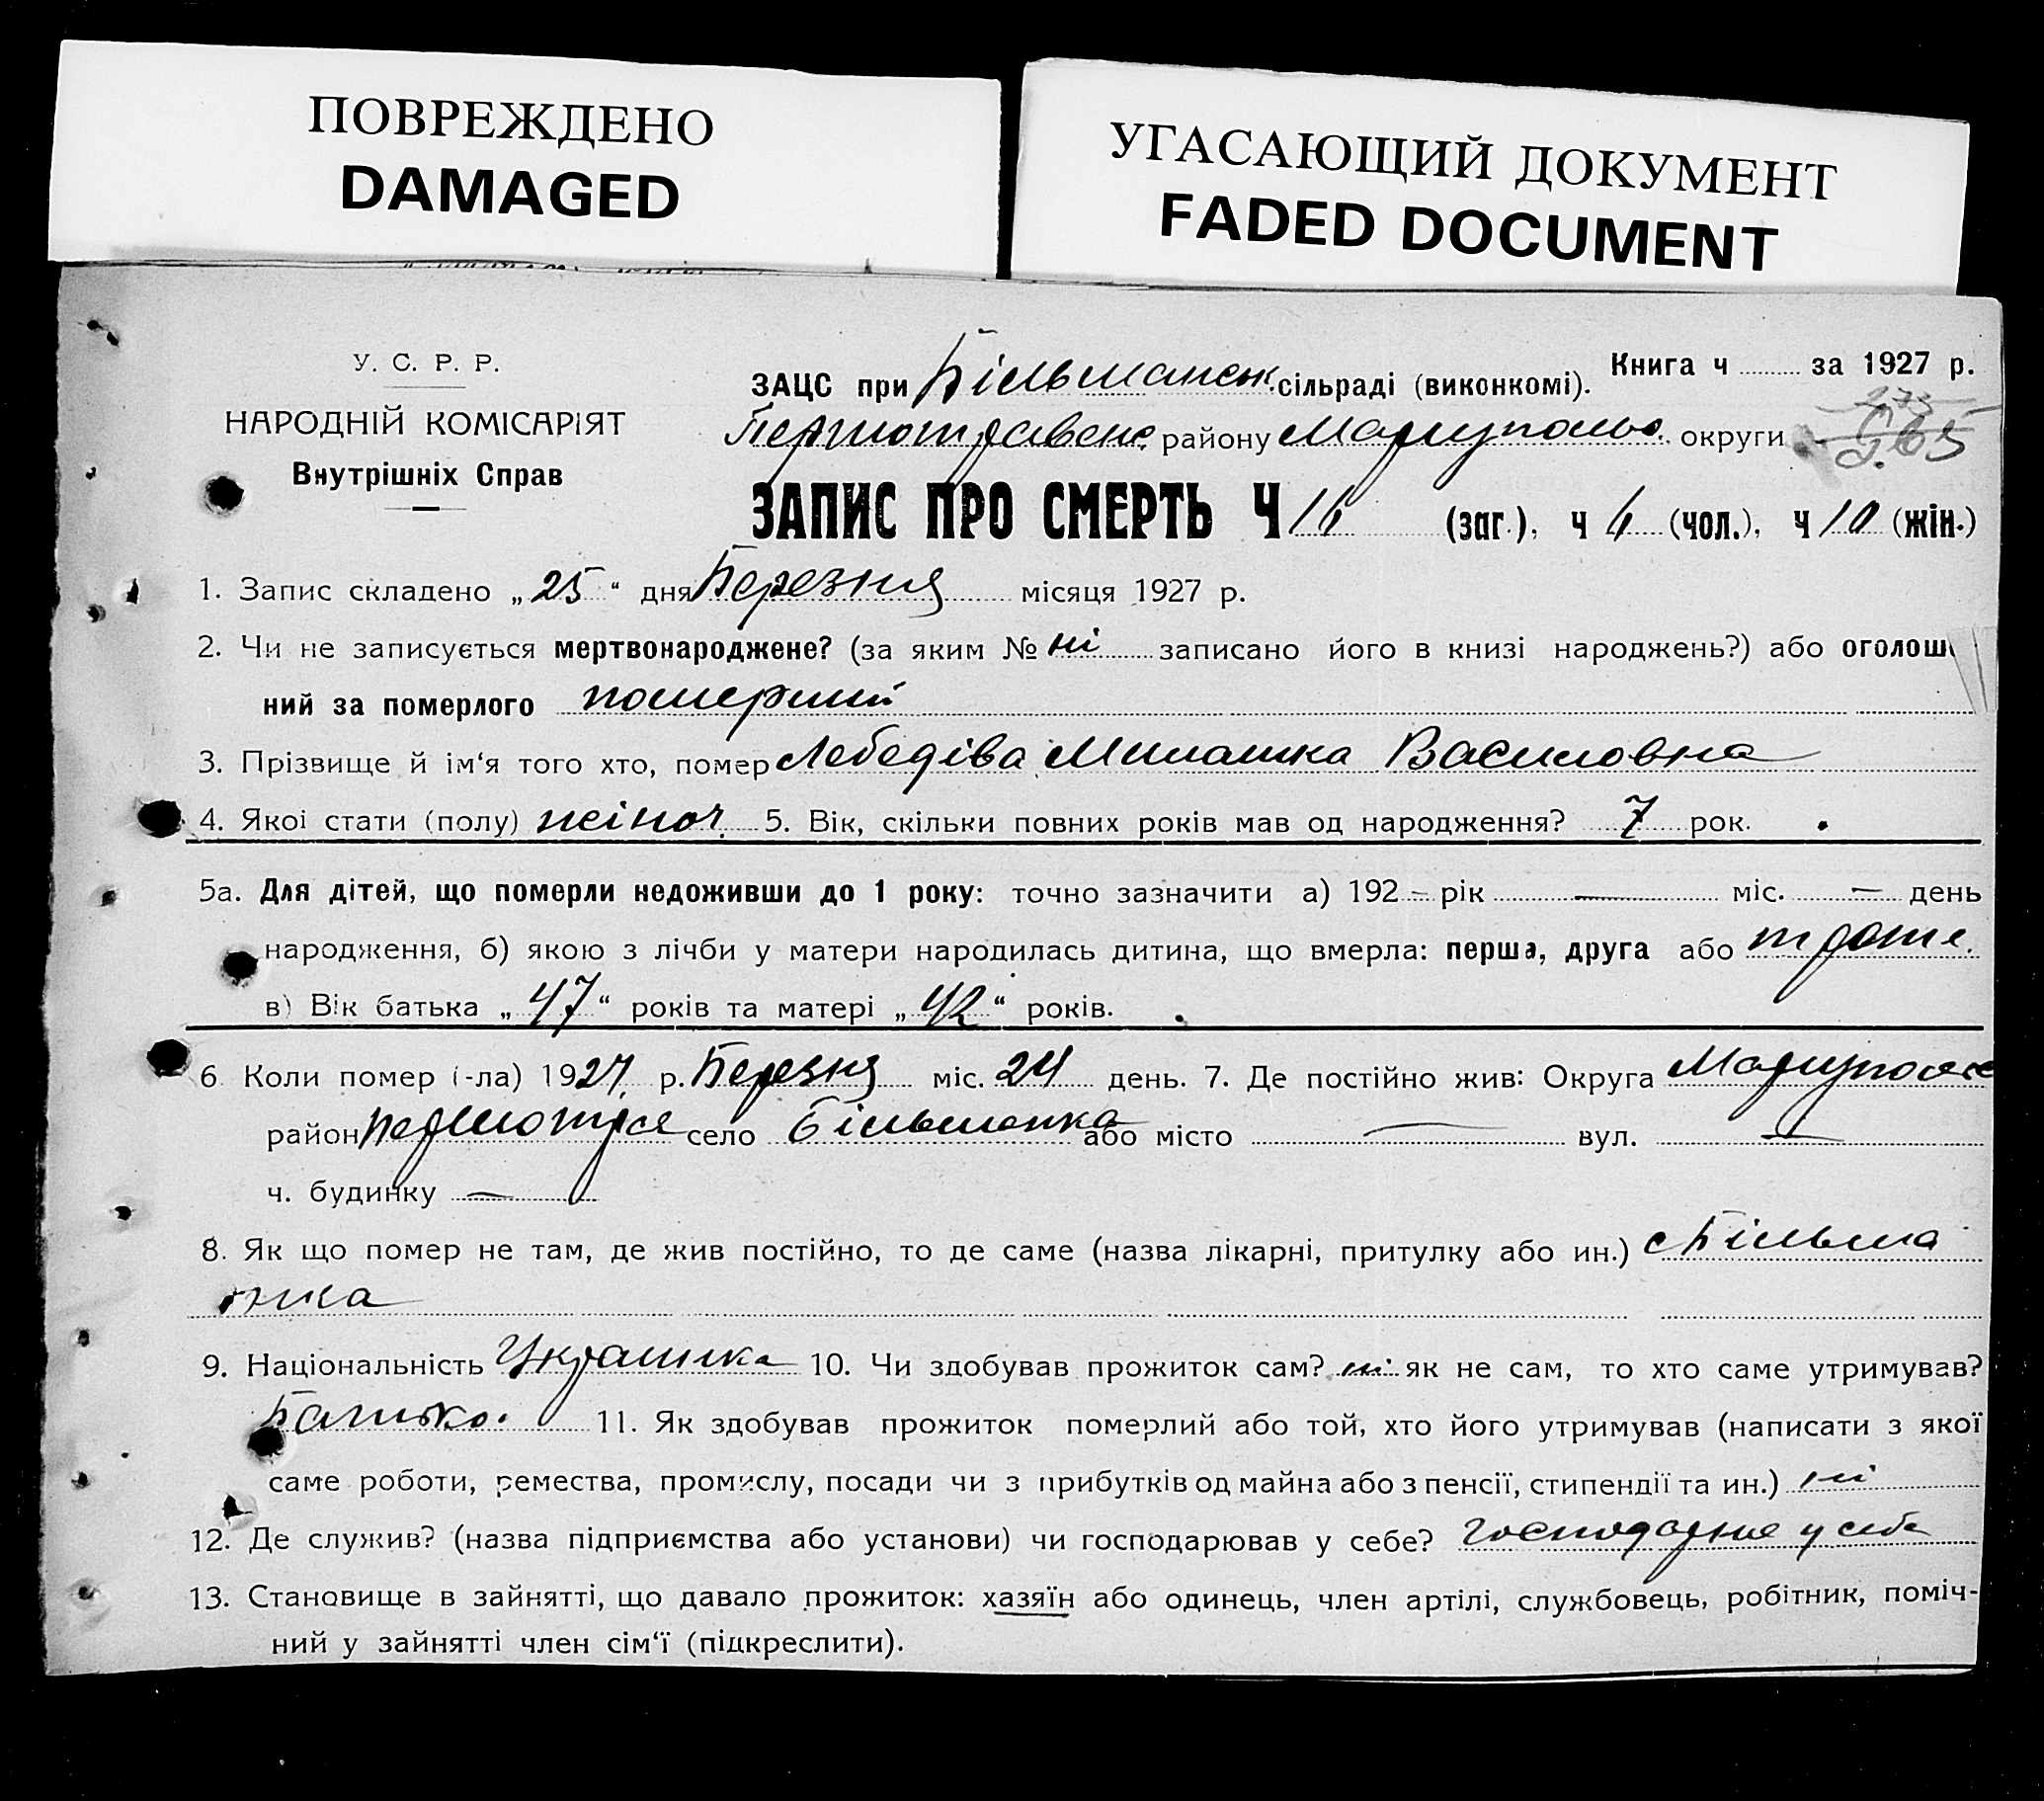 ПОВРЕЖДЕНО
DAMAGED
УГАСАЮЩИЙ ДОКУМЕНТ
FADED DOCUMENT
У. С. Р. Р.
НАРОДНІЙ КОМІСАРІЯТ
Внутрішніх Справ
Книга ч за 1927 р.
ЗАЦС при Більманськ. сільраді (виконкомі).
району Маріупольс. округи
ЗАПИС ПРО СМЕРТЬ Ч 16 (заг.), ч 6 (чол.), ч 10 (жін.)
1. Запис складено „ 25 “ дня Березня місяця 1927 р.
2. Чи не записується мертвонароджене? (за яким № ні записано його в книзі народжень?) або оголоше
ний за померлого померший
3. Прізвище й ім‘я того хто, помер Лебедіва Василовна
4. Якої стати (полу) жіноч. 5. Вік, скільки повних років мав од народження? 7 рок.
5а. Для дітей, що померли недоживши до 1 року: точно зазначити а) 192 – рік — міс. — день
народження, б) якою з лічби у матери народилась дитина, що вмерла: перша, друга або
в) Вік батька „ 47 “ років та матері „ 42 “ років.
6. Коли помер (-ла) 1927 р. Березня міс. 24 день. 7. Де постійно жив: Округа
район село Більманка або місто — вул. —
ч. будинку —
8. Як що помер не там, де жив постійно, то де саме (назва лікарні, притулку або ин.) с Більма
нка
9. Національність Украинка 10. Чи здобував прожиток сам? ні як не сам, то хто саме утримував?
Батько. 11. Як здобував прожиток померлий або той, хто його утримував (написати з якої
саме роботи, ремества, промислу, посади чи з прибутків од майна або з пенсії, стипендії та ин.) ні
12. Де служив? (назва підприємства або установи) чи господарював у себе? у себе
13. Становище в зайнятті, що давало прожиток: хазяїн або одинець, член артілі, службовець, робітник, поміч-
ний у зайнятті член сім‘ї (підкреслити).